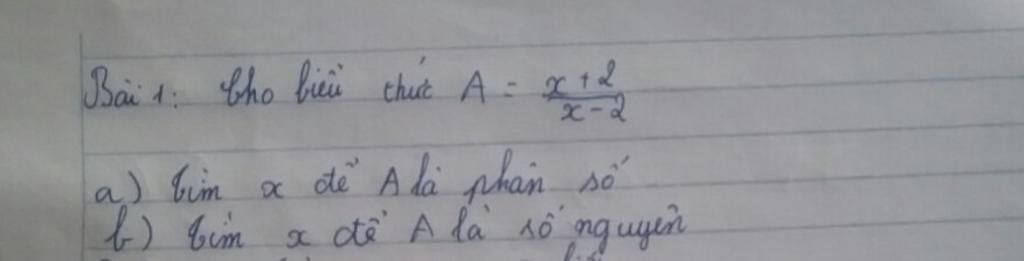 Bài 1: Cho biểu thức A = \frac{x+2}{x-2}
a) Tìm x để A là phân số
b) Tìm x để A là số nguyên